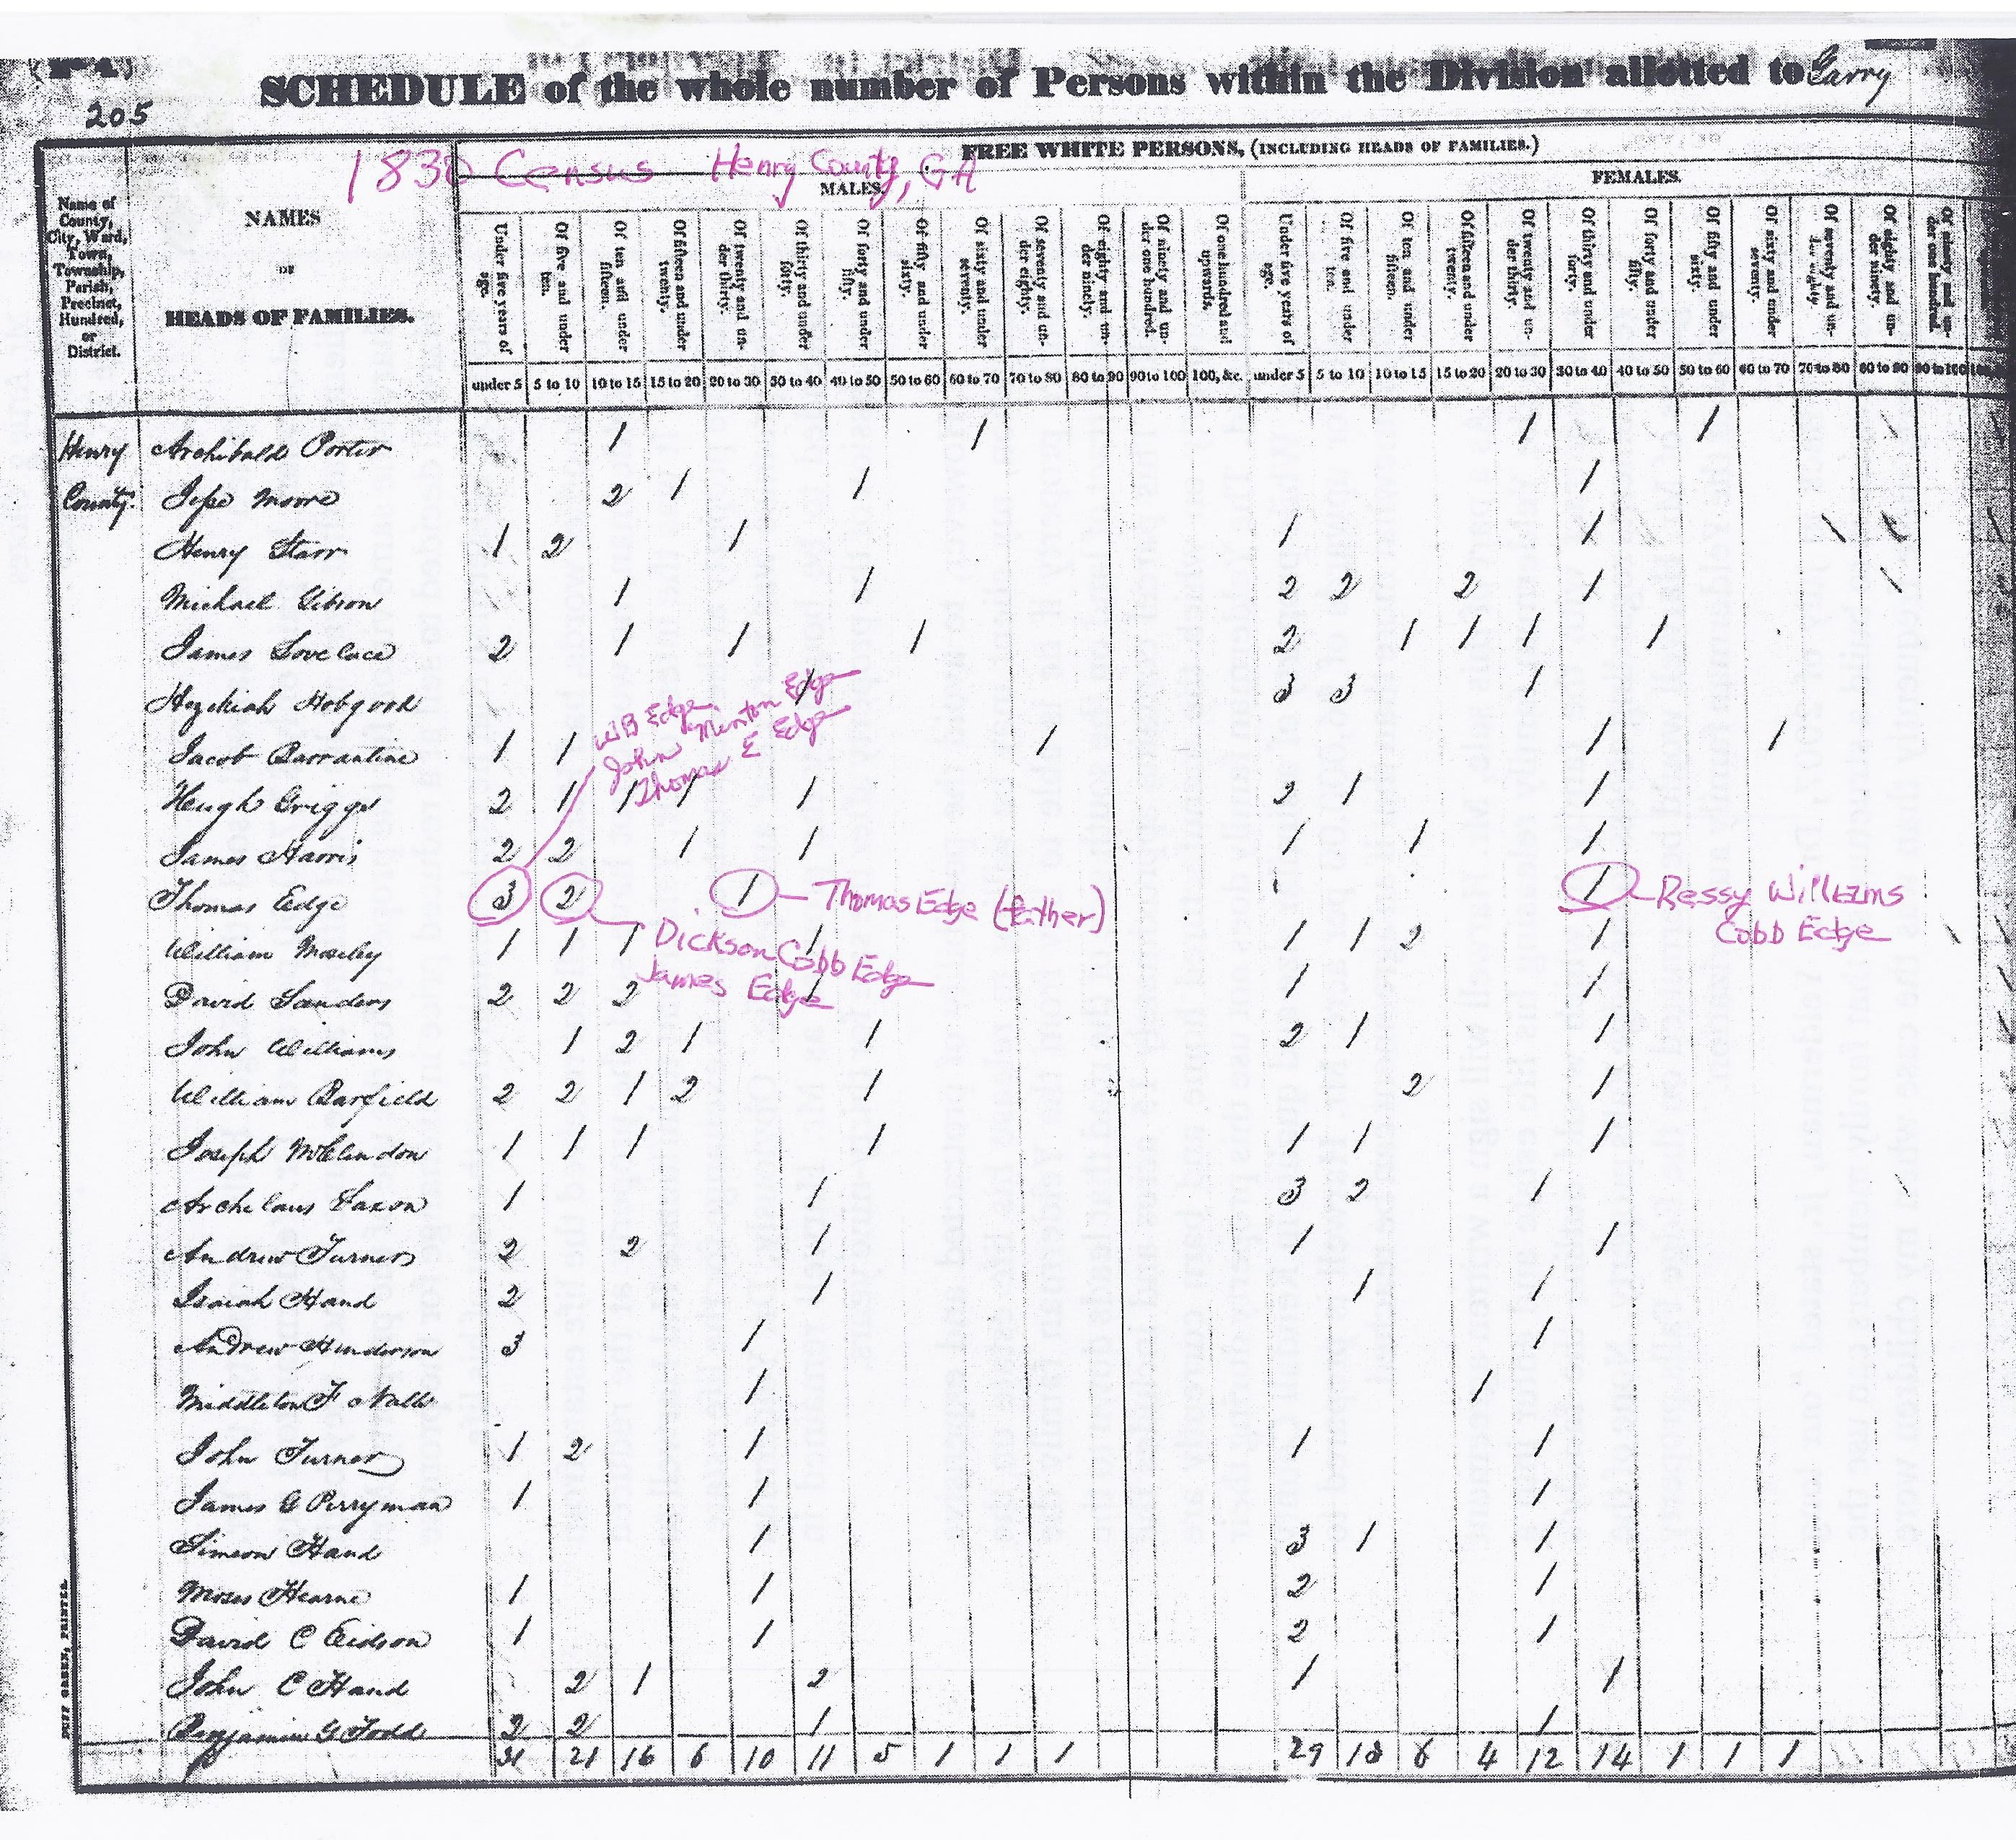 205
SCHEDULE of the whole number of Persons within the Division allotted to Garry
1830 Census Henry County, GA
FREE WHITE PERSONS, (INCLUDING HEADS OF FAMILIES.)
MALES. FEMALES.
Name of County, City, Ward, Town, Township, Parish, Precinct, Hundred, or District.
NAMES
OF
HEADS OF FAMILIES.
Under five years of age. Of five and under ten. Of ten and under fifteen. Of fifteen and under twenty. Of twenty and under thirty. Of thirty and under forty. Of forty and under fifty. Of fifty and under sixty. Of sixty and under seventy. Of seventy and under eighty. Of eighty and under ninety. Of ninety and under one hundred. Of one hundred and upwards. Under five years of age. Of five and under ten. Of ten and under fifteen. Of fifteen and under twenty. Of twenty and under thirty. Of thirty and under forty. Of forty and under fifty. Of fifty and under sixty. Of sixty and under seventy. Of seventy and under eighty. Of eighty and under ninety. Of ninety and under one hundred.
under 5 5 to 10 10 to 15 15 to 20 20 to 30 30 to 40 40 to 50 50 to 60 60 to 70 70 to 80 80 to 90 90 to 100 100, &c. under 5 5 to 10 10 to 15 15 to 20 20 to 30 30 to 40 40 to 50 50 to 60 60 to 70 70 to 80 80 to 90 90 to 100
Henry Archibald Porter 1 1 1 1
County. Jesse Moore 2 1 1 1
Henry Starr 1 2 1 1 1
Michael Gibson 1 1 2 2 2 1
James Lovelace 2 1 1 1 2 1 1 1 1
Hezekiah Hobgood 1 3 3 1
WB Edge
John Minton Edge
Thomas E Edge
Jacob Barrantine 1 1 1 1 1
Hugh Griggs 2 1 1 1 1 2 1 1
James Harris 2 2 1 1 1 1 1
Thomas Edge 3 2 1 Thomas Edge (father) 1 Bessy Williams
Cobb Edge
Dickson Cobb Edge
James Edge
William Mosley 1 1 1 1 1 1 2 1
David Sanders 2 2 2 1 1 1
John Williams 1 2 1 1 2 1 1
William Barfield 2 2 1 2 1 2 1
Joseph McClendon 1 1 1 1 1 1 1
Archelaus Saxon 1 1 3 2 1
Andrew Turner 2 2 1 1 1
Isaiah Hand 2 1 1 1
Andrew Henderson 3 1 1
Middleton F 1 1
John Turner 1 2 1 1 1
James G Perryman 1 1 1
Simeon Hand 1 3 1 1
Moses Hearne 1 1 2 1
David C Eidson 1 1 2 1
John C Hand 2 1 2 1 1
Benjamin G Todd 2 2 1 1
31 21 16 6 10 11 5 1 1 1 29 18 8 4 12 14 1 1 1
DUFF GREEN, PRINTER.